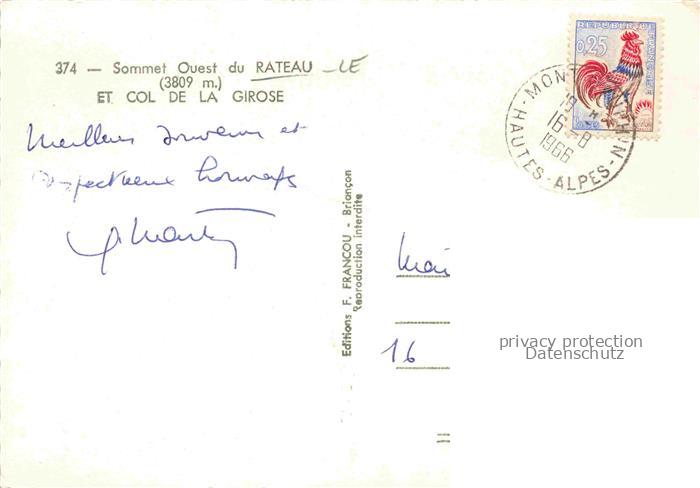 374 — Sommet Ouest du RATEAU - LE
(3809 m.)
ET COL DE LA GIROSE
Meilleurs souvenirs et
respectueux hommages
Editions F. FRANCOU - Briançon
Reproduction interdite
REPUBLIQUE FRANCAISE
0,25
HAUTES-ALPES
16-8
1966
16
privacy protection
Datenschutz